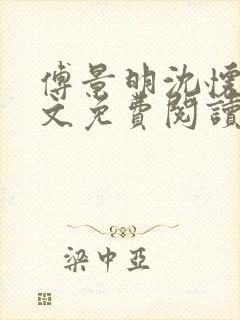 傅景明沈懷
文免費閱讀
梁中亞